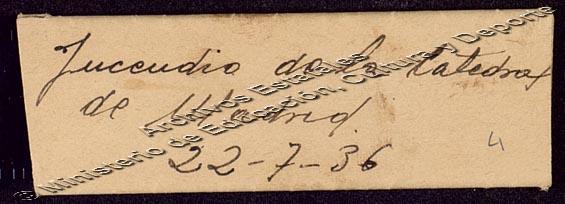 Incendio de la Catedral
de Madrid
22-7-36
4
© Archivos Estatales
Ministerio de Educación, Cultura y Deporte